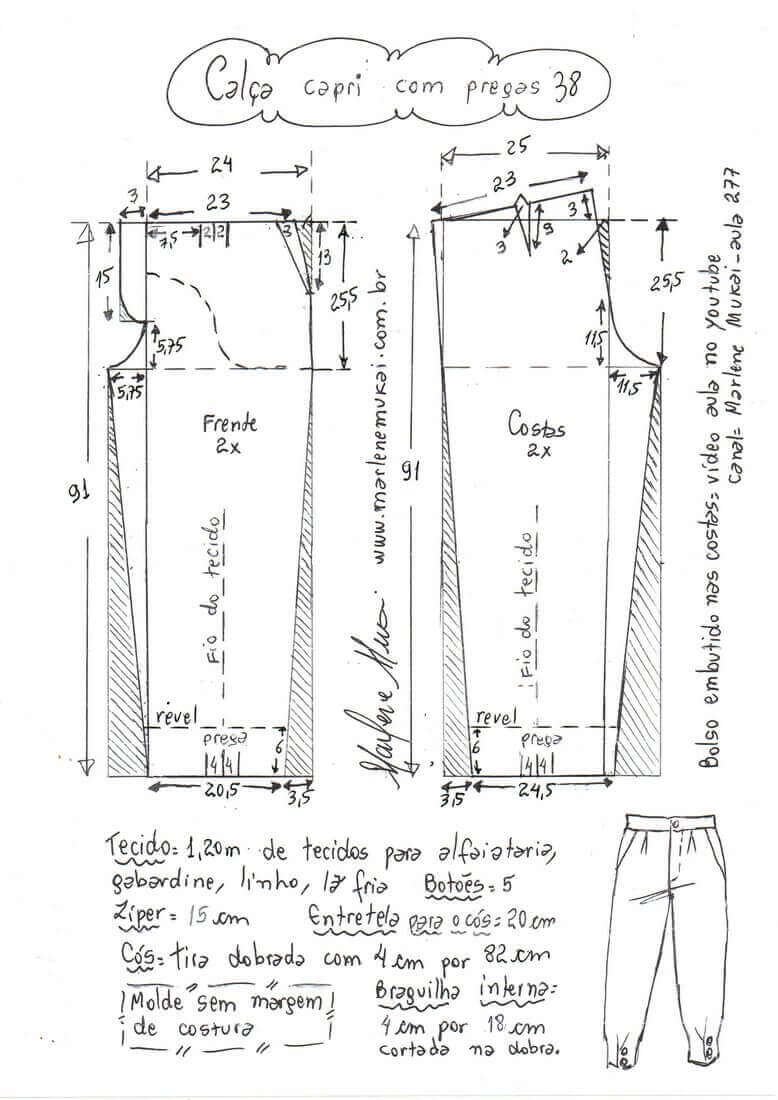 Calça capri com pregas 38
24
3
23
7,5
2 2
3
13
15
25,5
5,75
5,75
Frente
2x
91
Fio do tecido
revel
prega
4 4
6
20,5
3,5
www.marlenemukai.com.br
25
23
3
3
9
2
25,5
11,5
11,5
Costas
2x
91
Fio do tecido
revel
prega
4 4
6
3,5
24,5
Bolso embutido nas costas= vídeo aula no Youtube
canal= Marlene Mukai - aula 277
Tecido= 1,20m de tecidos para alfaiataria,
gabardine, linho, lã fria Botões= 5
Zíper= 15 cm Entretela para o cós= 20 cm
Cós= tira dobrada com 4 cm por 82 cm
Molde sem margem
de costura
Braguilha interna=
4 cm por 18 cm
cortada na dobra.